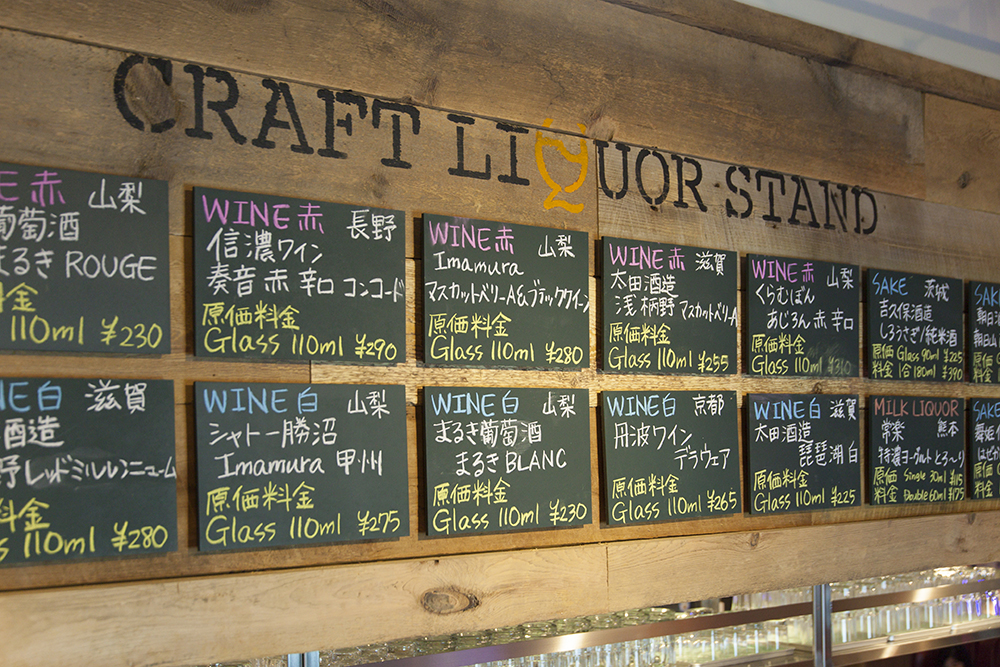 CRAFT LIQUOR STAND
赤 山梨
葡萄酒
まるき ROUGE
料金
110ml ¥230
WINE 赤 長野
信濃ワイン
奏音 赤 辛口 コンコード
原価料金
Glass 110ml ¥290
WINE 赤 山梨
Imamura
マスカットベリーA&ブラッククイーン
原価料金
Glass 110ml ¥280
WINE 赤 滋賀
太田酒造
浅柄野 マスカットベリーA
原価料金
Glass 110ml ¥255
WINE 赤 山梨
くらむぼん
あじろん 赤 辛口
原価料金
Glass 110ml ¥310
SAKE 茨城
吉久保酒造
しろうさぎ/純米酒
原価 Glass 90ml ¥225
料金 1合 180ml ¥390
SAKE
朝日
朝日山
原価
料金
WINE 白 滋賀
酒造
野 レッドミルレンニューム
料金
110ml ¥280
WINE 白 山梨
シャトー勝沼
Imamura 甲州
原価料金
Glass 110ml ¥275
WINE 白 山梨
まるき葡萄酒
まるき BLANC
原価料金
Glass 110ml ¥230
WINE 白 京都
丹波ワイン
デラウェア
原価料金
Glass 110ml ¥265
WINE 白 滋賀
太田酒造
琵琶湖 白
原価料金
Glass 110ml ¥225
MILK LIQUOR
常楽 熊本
特濃ヨーグルトとろ〜り
原価 Single 30ml ¥115
料金 Double 60ml ¥175
SAKE
舞姫
原価
料金